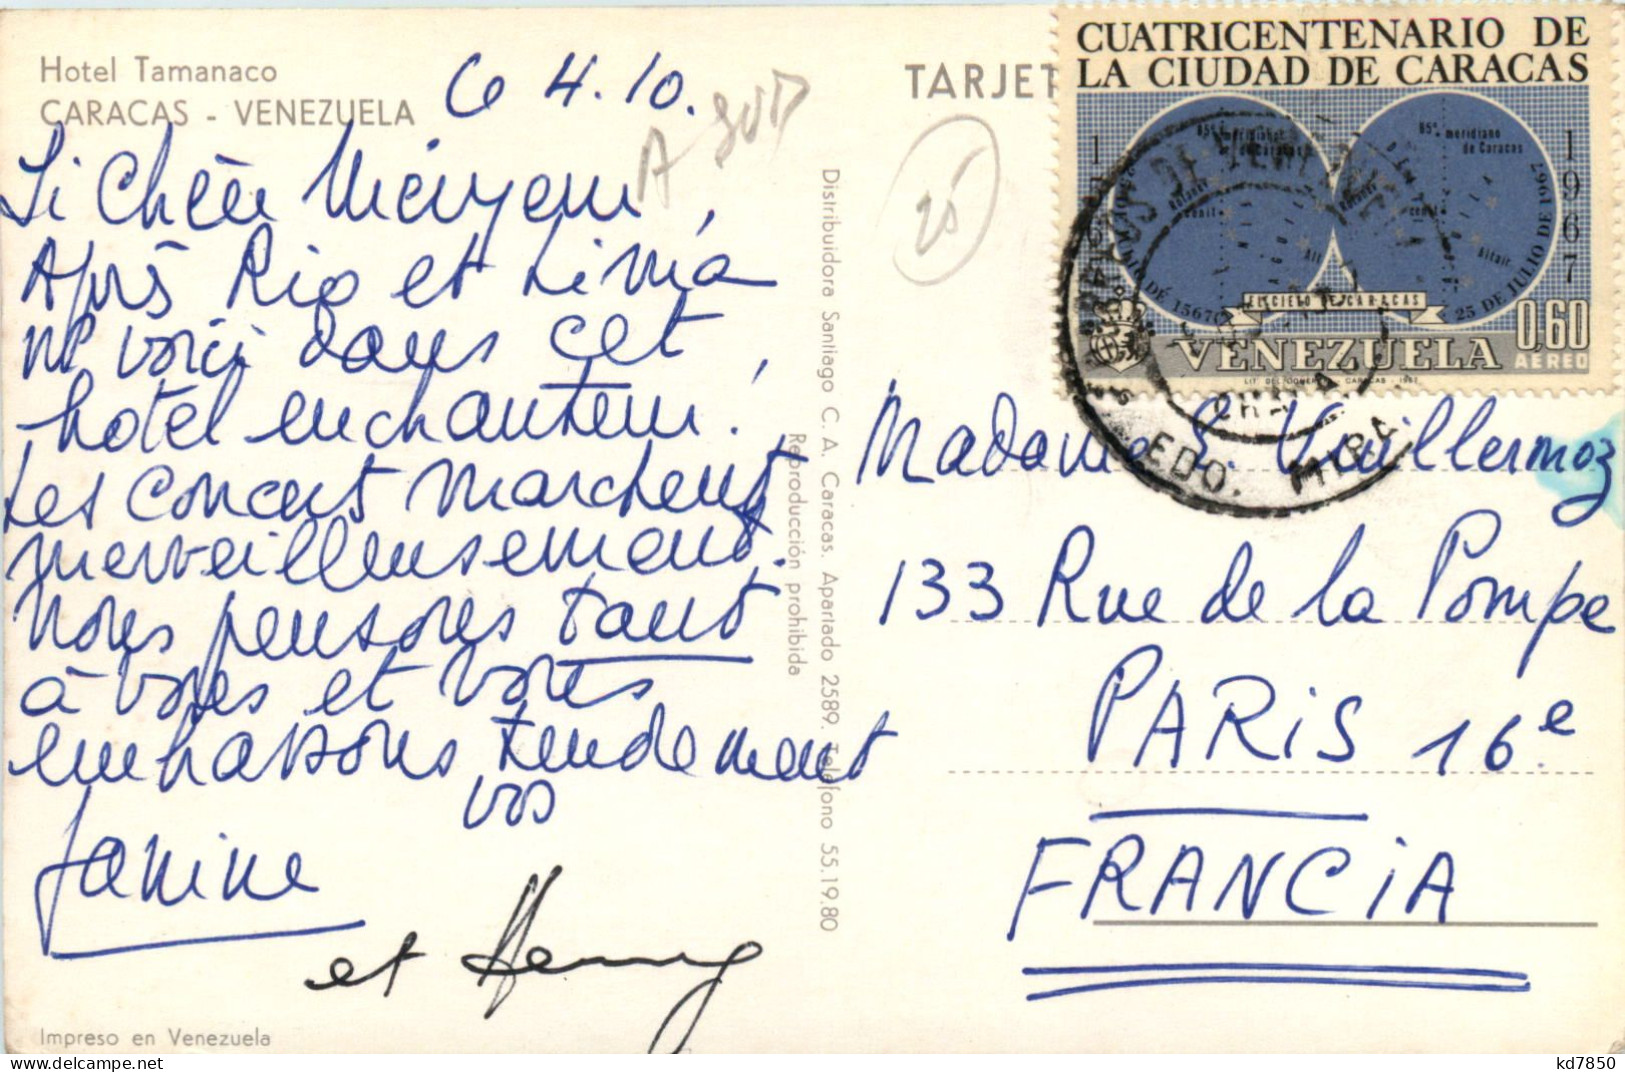 Hotel Tamanaco
CARACAS - VENEZUELA
Le 4.10.
A SUD
25
TARJET
CUATRICENTENARIO DE
LA CIUDAD DE CARACAS
1967
65º meridiano
de Caracas
cenit
Altair
25 DE JULIO DE 1967
DE 1567
EL CIELO DE CARACAS
0,60
VENEZUELA
AEREO
EDO. MIRA
Si Chère Méryem,
Après Rio et Lima
ns voici dans cet
hotel enchanteur!
Les concert marchent
merveilleusement.
Nous pensons tant
à vous et vous
embrassons tendement
vos
Janine
et Henry
Distribuidora Santiago C. A. Caracas. Apartado 2589. Teléfono 55.19.80
Reproducción prohibida
Madame S. Vuillermoz
133 Rue de la Pompe
PARIS 16e
FRANCIA
Impreso en Venezuela
kd7850